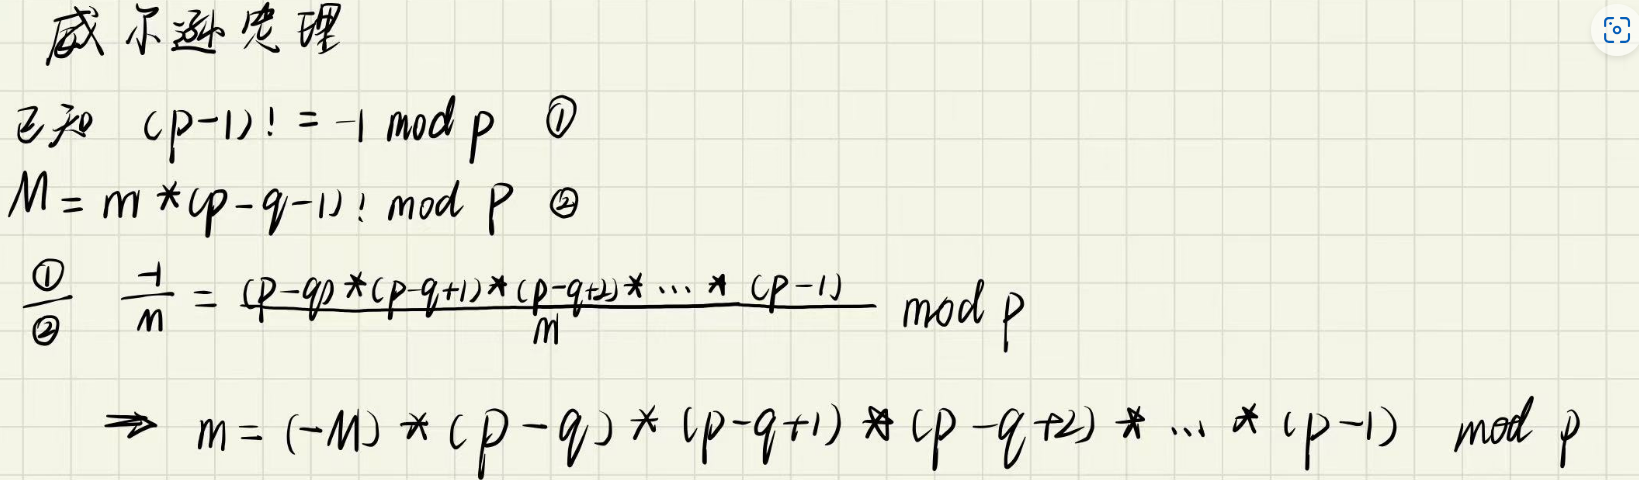 威尔逊定理
已知 (p-1)! = -1 mod p ①
M = m *(p-q-1)! mod p ②
①/② -1/M = (p-q)*(p-q+1)*(p-q+2)*...*(p-1)/m mod p
⇒ m = (-M) * (p-q) * (p-q+1) * (p-q+2) * ... * (p-1) mod p